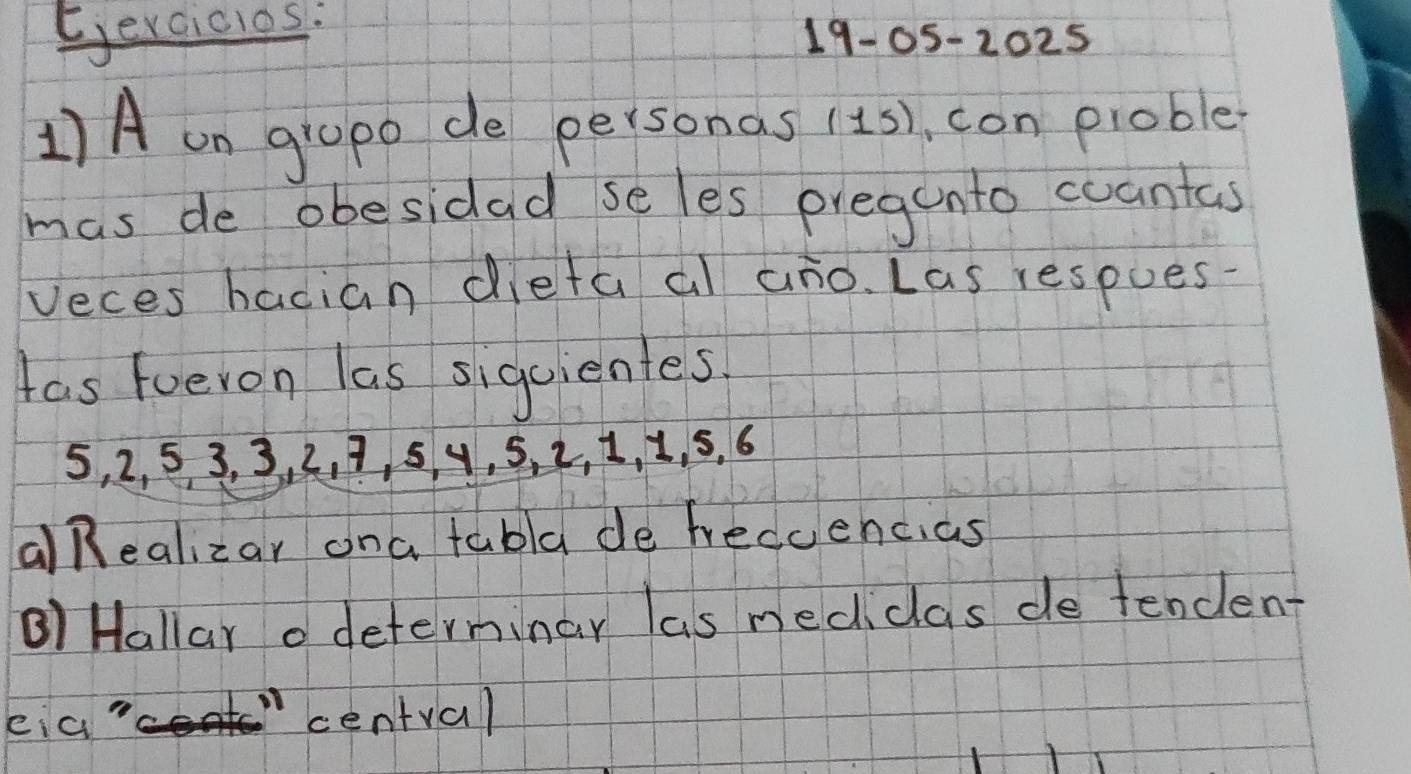 Ejercicios:
19-05-2025
1) A un grupo de personas (15), con proble-
mas de obesidad se les pregunto cuantas
veces hacian dieta al año. Las respues-
tas fueron las siguientes.
5, 2, 5, 3, 3, 2, 7, 5, 4, 5, 2, 1, 1, 5, 6
a) Realizar una tabla de frecuencias
B) Hallar o determinar las medidas de tenden-
cia " " central